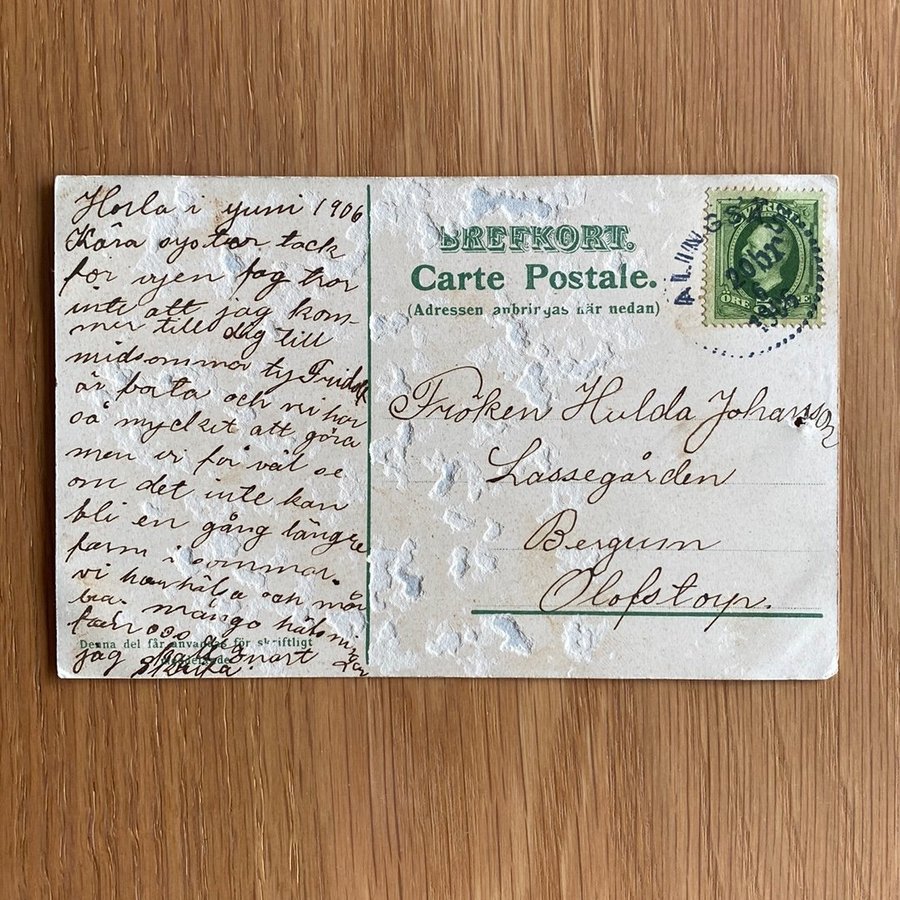 Horla i yuni 1906
Kära syster tack
för vyen Jag tror
inte att jag kom-
mer till dig till
midsommar ty Fridolf
är borta och vi har
så mycket att göra
men vi får väl se
om det inte kan
bli en gång längre
fram i sommar.
vi har hälsa och mår
bra. många hälsningar
från oss
jag snart
Denna del får användas för skriftligt
BREFKORT.
Carte Postale.
(Adressen anbringas här nedan)
ALINGSÅS
SVERIGE
ÖRE
Fröken Hulda Johansson
Lassegården
Bergum
Olofstorp.